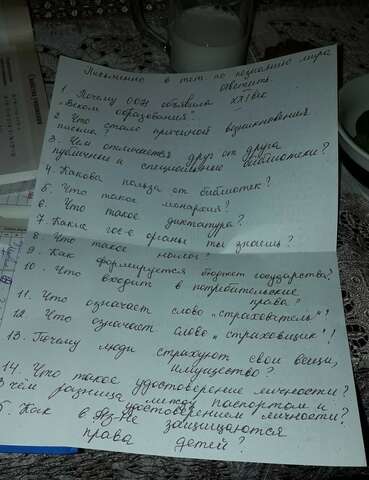 Письменно в тет по познанию мира
ответить.
1. Почему ООН объявила XXI век
"веком образования"?
2. Что стало причиной возникновения
письма?
3. Чем отличается друг от друга
публичные и специальные библиотеки?
4. Какова польза от библиотек?
5. Что такое монархия?
6. Что такое диктатура?
7. Какие гос-е органы ты знаешь?
8. Что такое налог?
9. Как формируется бюджет государства?
10. Что входит в потребительские
права?
11. Что означает слово "страхователь"?
12. Что означает слово "страховщик"?
13. Почему люди страхуют свои вещи,
имущество?
14. Что такое удостоверение личности?
В чём разница между паспортом и
удостоверением личности?
Как в Аз-не защищаются
права детей?